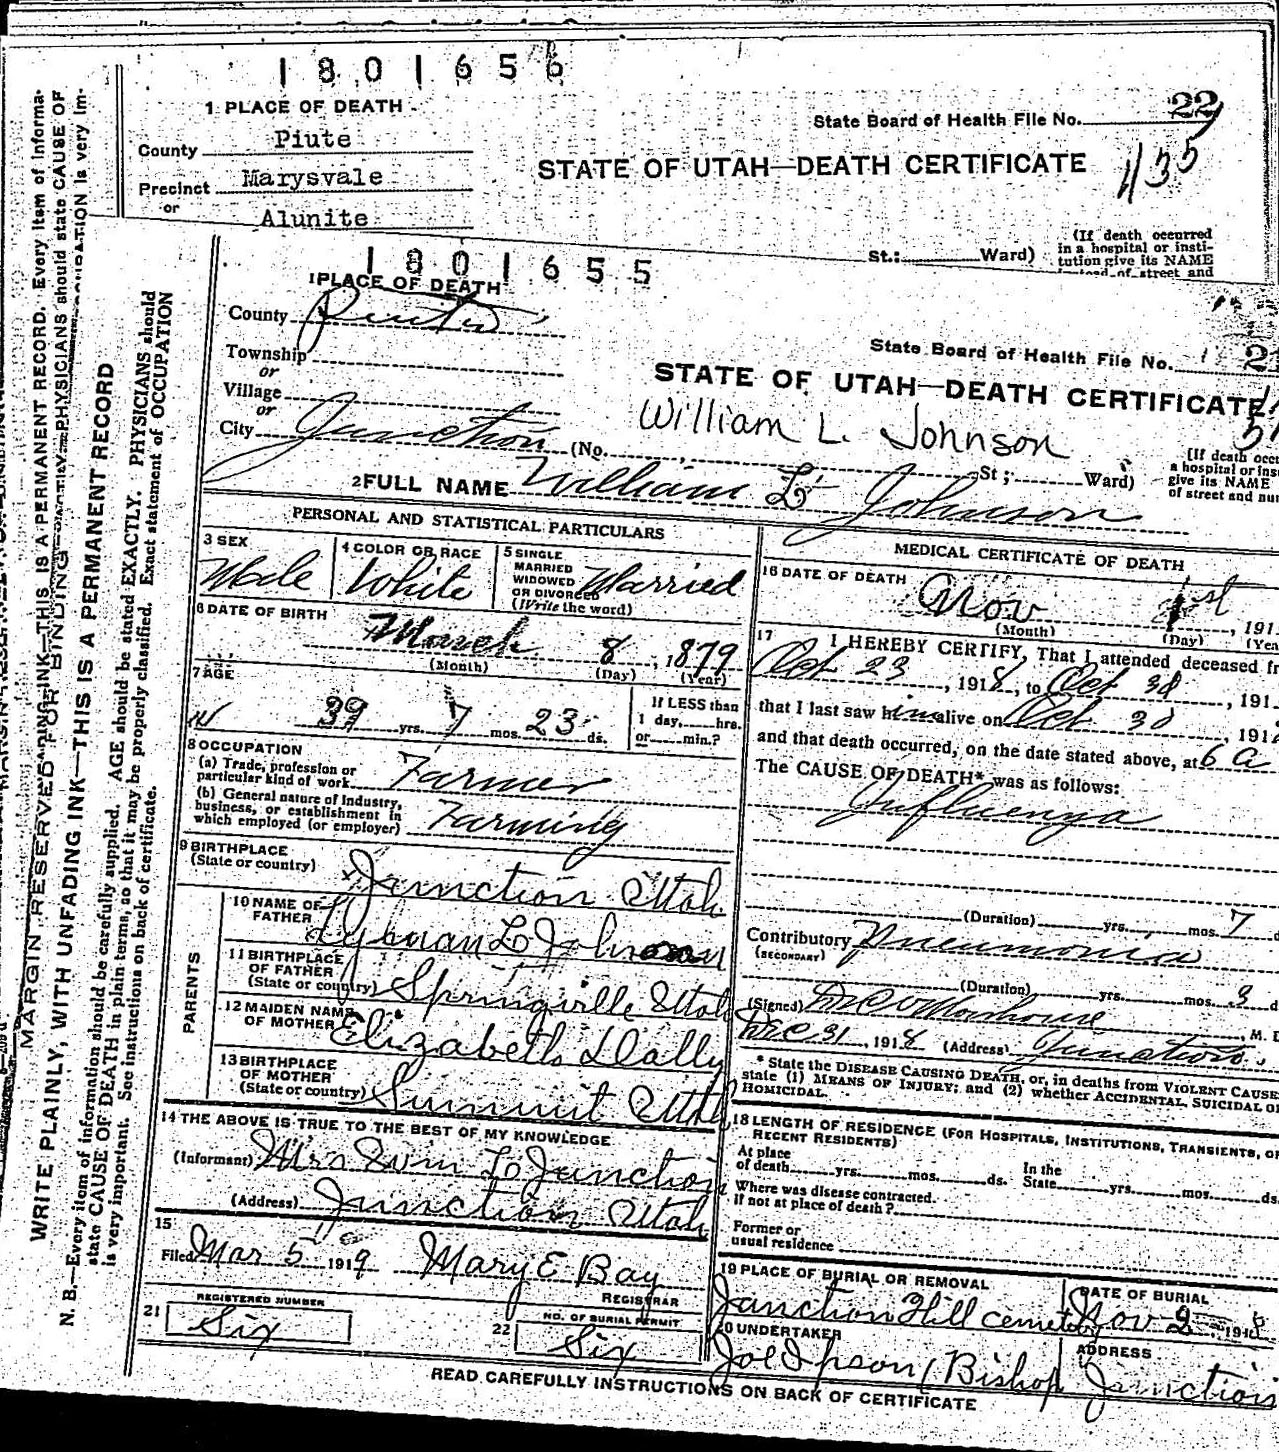 1801656
1 PLACE OF DEATH
County Piute
Precinct Marysvale
or
Alunite
State Board of Health File No. 22
STATE OF UTAH—DEATH CERTIFICATE
135
St.; Ward)
(If death occurred
in a hospital or insti-
tution give its NAME
instead of street and
1801655
1 PLACE OF DEATH
County
Township
or
Village
or
City Junction (No. St; Ward)
State Board of Health File No. 2
STATE OF UTAH—DEATH CERTIFICATE
William L. Johnson
[If death occ
a hospital or ins
give its NAME
of street and nu
2 FULL NAME William L Johnson
PERSONAL AND STATISTICAL PARTICULARS
3 SEX
Male
4 COLOR OR RACE
White
5 SINGLE
MARRIED
WIDOWED
OR DIVORCED
(Write the word)
Married
6 DATE OF BIRTH
March 8, 1879
(Month) (Day) (Year)
7 AGE
39 yrs. 7 mos. 23 ds.
If LESS than
1 day, hrs.
or min.?
8 OCCUPATION
(a) Trade, profession or
particular kind of work Farmer
(b) General nature of industry,
business, or establishment in
which employed (or employer) Farming
9 BIRTHPLACE
(State or country) Junction Utah
PARENTS
10 NAME OF
FATHER Lyman L Johnson
11 BIRTHPLACE
OF FATHER
(State or country) Springville Utah
12 MAIDEN NAME
OF MOTHER Elizabeth Dally
13 BIRTHPLACE
OF MOTHER
(State or country) Summit Utah
14 THE ABOVE IS TRUE TO THE BEST OF MY KNOWLEDGE
(Informant) Mrs Wm L Junction
(Address) Junction Utah
15
Filed Mar 5 1919 Mary E Bay
REGISTRAR
21 REGISTERED NUMBER
Six
22 NO. OF BURIAL PERMIT
Six
MEDICAL CERTIFICATE OF DEATH
16 DATE OF DEATH
Nov 1st, 191
(Month) (Day) (Yea
17 I HEREBY CERTIFY, That I attended deceased fr
Oct 23, 1918, to Oct 30, 191
that I last saw him alive on Oct 30, 191
and that death occurred, on the date stated above, at 6 a
The CAUSE OF DEATH* was as follows:
Influenza
(Duration) yrs. mos. 7 d
Contributory Pneumonia
(SECONDARY)
(Duration) yrs. mos. 3 d
(Signed) M. D
Dec 31, 1918 (Address) Junction
* State the DISEASE CAUSING DEATH, or, in deaths from VIOLENT CAUSE
state (1) MEANS OF INJURY; and (2) whether ACCIDENTAL, SUICIDAL or
HOMICIDAL.
18 LENGTH OF RESIDENCE (FOR HOSPITALS, INSTITUTIONS, TRANSIENTS, OR
RECENT RESIDENTS)
At place
of death yrs. mos. ds.
In the
State yrs. mos. ds.
Where was disease contracted
if not at place of death?
Former or
usual residence
19 PLACE OF BURIAL OR REMOVAL
Junction Hill cemetery
DATE OF BURIAL
Nov 2, 191
20 UNDERTAKER
Bishop
ADDRESS
Junction
READ CAREFULLY INSTRUCTIONS ON BACK OF CERTIFICATE
MARGIN RESERVED FOR BINDING
WRITE PLAINLY, WITH UNFADING INK—THIS IS A PERMANENT RECORD
N. B.—Every item of information should be carefully supplied. AGE should be stated EXACTLY. PHYSICIANS should
state CAUSE OF DEATH in plain terms, so that it may be properly classified. Exact statement of OCCUPATION
is very important. See instructions on back of certificate.